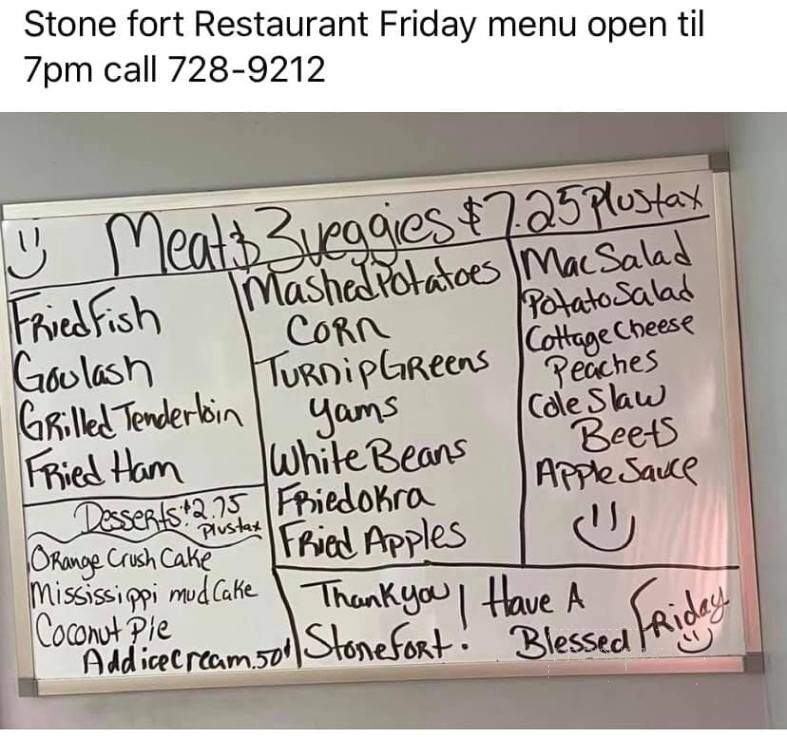 Stone fort Restaurant Friday menu open til
7pm call 728-9212
Meat & 3 veggies $7.25 Plus tax
Fried Fish
Goulash
Grilled Tenderloin
Fried Ham
Desserts $2.75
Plus tax
Orange Crush Cake
Mississippi mud Cake
Coconut Pie
Add ice cream .50¢
Mashed Potatoes
Corn
Turnip Greens
Yams
White Beans
Fried okra
Fried Apples
Mac Salad
Potato Salad
Cottage Cheese
Peaches
Cole Slaw
Beets
Apple Sauce
Thank you
Stonefort!
Have A
Blessed Friday